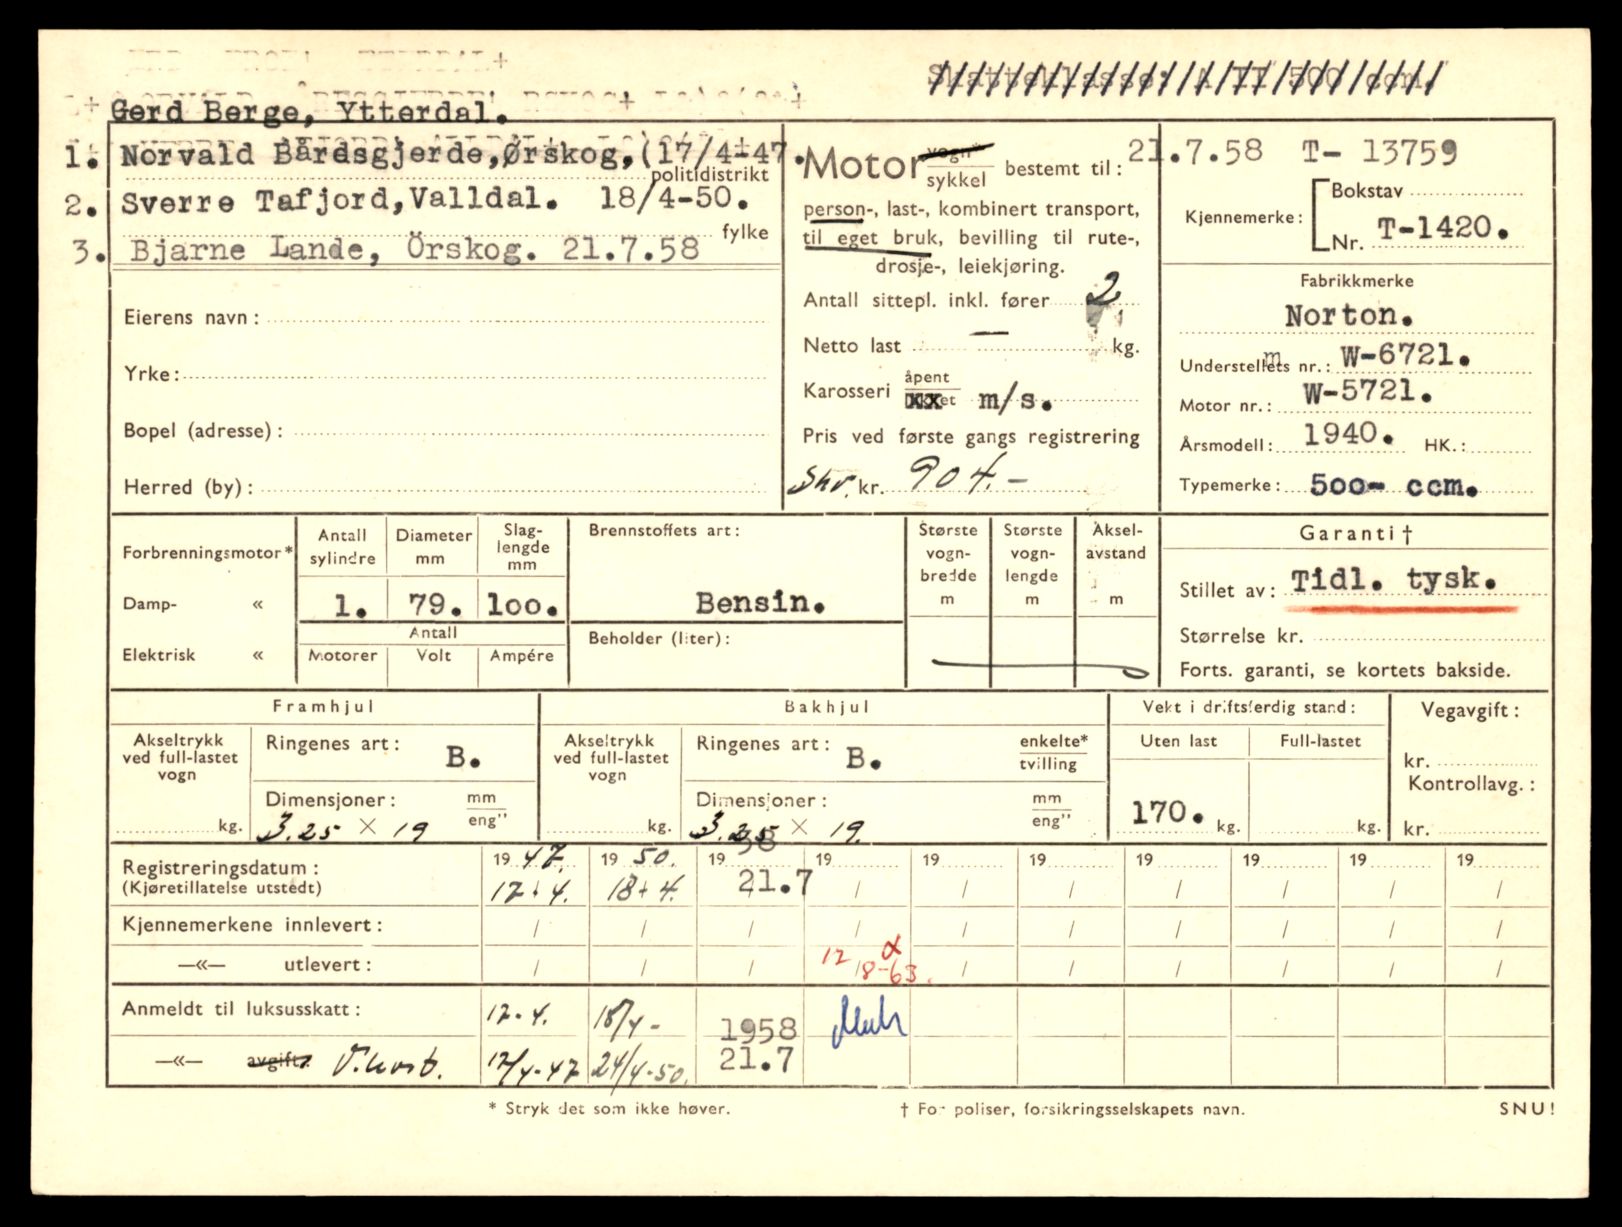 Gerd Berge, Ytterdal.
1. Norvald Bårdsgjerde,Ørskog,(17/4-47.
politidistrikt
2. Sverre Tafjord,Valldal. 18/4-50.
fylke
3. Bjarne Lande, Örskog. 21.7.58
Eierens navn:
Yrke:
Bopel (adresse):
Herred (by):
Motor vogn* sykkel bestemt til: 21.7.58 T- 13759
person-, last-, kombinert transport,
til eget bruk, bevilling til rute-,
drosje-, leiekjøring.
Antall sittepl. inkl. fører 2
Netto last — kg.
Karosseri åpent xx m/s.
Pris ved første gangs registrering
kr. 904.-
Kjennemerke: Bokstav
Nr. T-1420.
Fabrikkmerke
Norton.
Understellets nr.: W-6721.
Motor nr.: W-5721.
Årsmodell: 1940. HK.:
Typemerke: 500- ccm.
Forbrenningsmotor*
Damp- «
Elektrisk «
Antall sylindre
1.
Diameter mm
79.
Slag-lengde mm
100.
Antall
Motorer Volt Ampére
Brennstoffets art:
Bensin.
Beholder (liter):
Største vogn-bredde m
Største vogn-lengde m
Aksel-avstand m
Garanti †
Stillet av: Tidl. tysk.
Størrelse kr.
Forts. garanti, se kortets bakside.
Framhjul
Akseltrykk ved full-lastet vogn
kg.
Ringenes art: B.
Dimensjoner: mm eng"
3.25 × 19
Bakhjul
Akseltrykk ved full-lastet vogn
kg.
Ringenes art: B. enkelte* tvilling
Dimensjoner: mm eng"
3.25 × 19.
Vekt i driftsferdig stand:
Uten last Full-lastet
170. kg. kg.
Vegavgift:
kr.
Kontrollavg.:
kr.
Registreringsdatum: 19 47. 19 50. 19 58 19 19 19 19 19 19 19
(Kjøretillatelse utstedt) 17/4. 18/4. 21.7 / / / / / / /
Kjennemerkene innlevert: / / / / / / / / / /
—«— utlevert: / / / 12/8-63. / / / / / /
Anmeldt til luksusskatt: 17.4. 18/4- 1958
—«— avgift: 17/4-47 24/4-50. 21.7
* Stryk det som ikke høver.
† For poliser, forsikringsselskapets navn.
SNU!